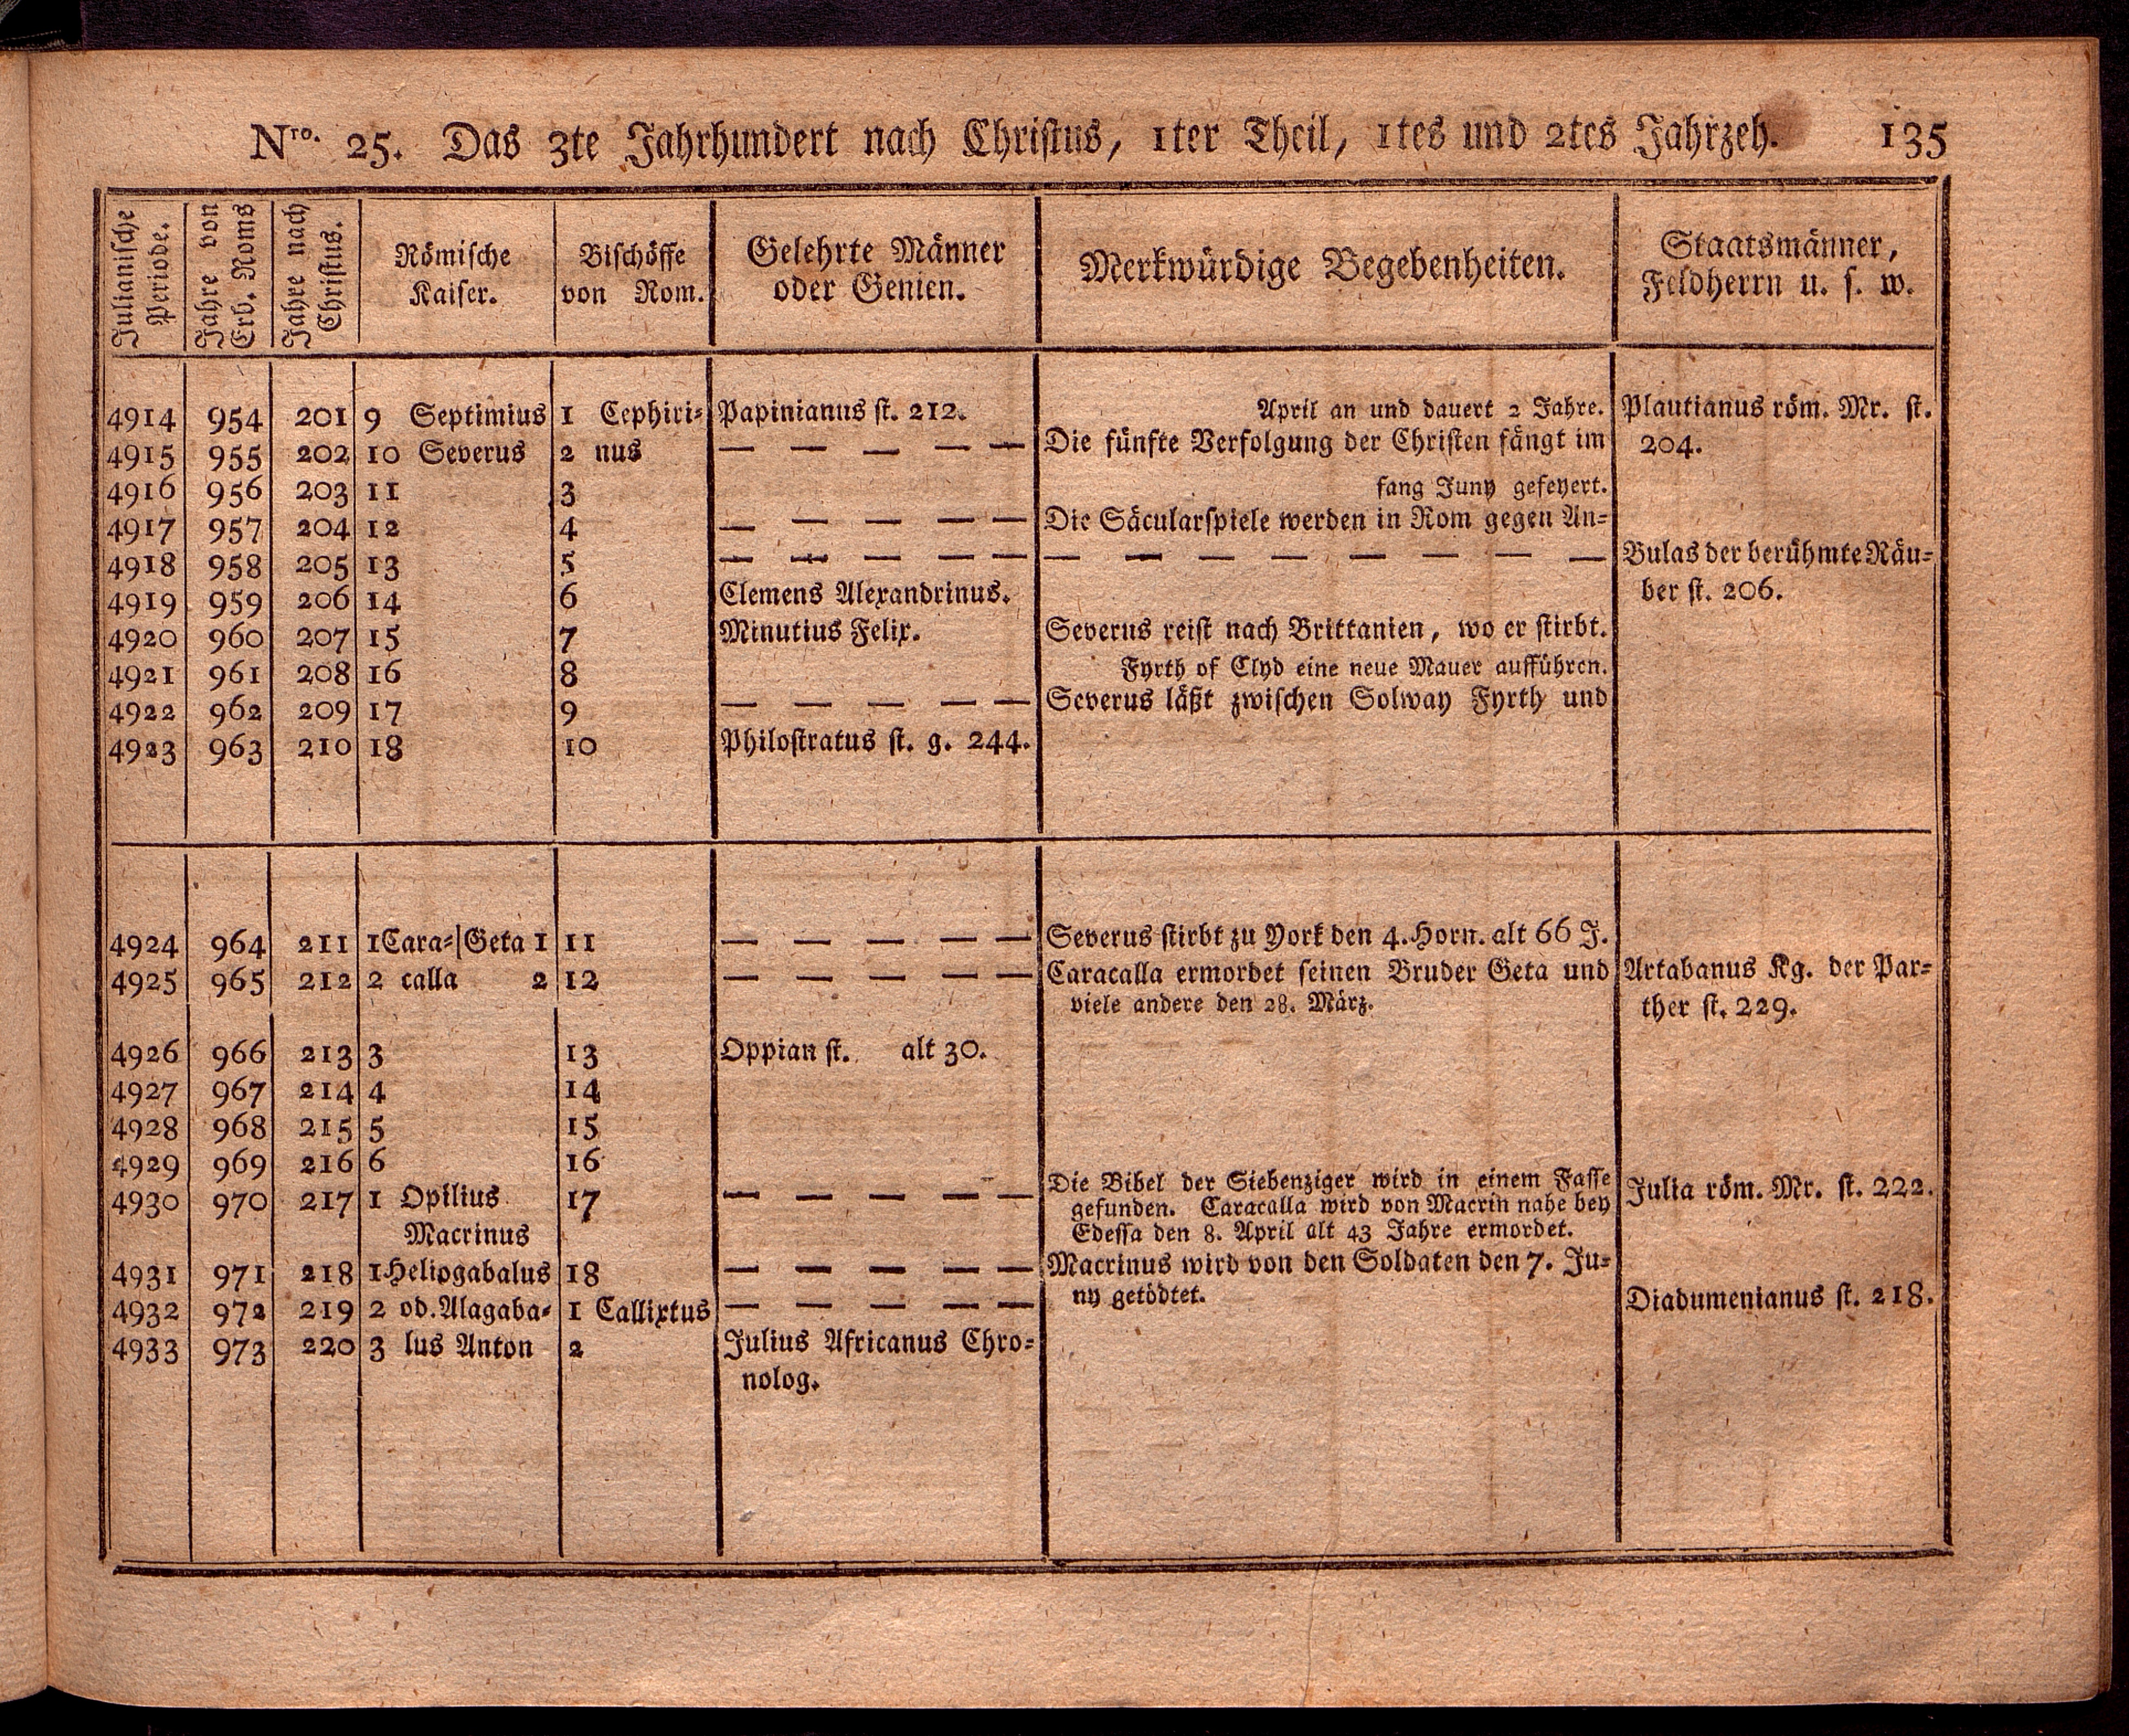 Nro. 25. Das 3te Jahrhundert nach Christus, 1ter Theil, 1tes und 2tes Jahrzeh. 135
Julianische Periode. | Jahre von Erb. Roms | Jahre nach Christus. | Römische Kaiser. | Bischöffe von Rom. | Gelehrte Männer oder Genien. | Merkwürdige Begebenheiten. | Staatsmänner, Feldherrn u. s. w.
4914 954 201 9 Septimius 1 Cephiri= Papinianus st. 212. April an und dauert 2 Jahre. Plautianus röm. Mr. st.
4915 955 202 10 Severus 2 nus — — — — — Die fünfte Verfolgung der Christen fängt im 204.
4916 956 203 11 3 fang Juny gefeyert.
4917 957 204 12 4 — — — — — Die Säcularspiele werden in Rom gegen An=
4918 958 205 13 5 — — — — — — — — — — — — — Bulas der berühmte Räu=
4919 959 206 14 6 Clemens Alexandrinus. ber st. 206.
4920 960 207 15 7 Minutius Felix. Severus reist nach Brittanien, wo er stirbt.
4921 961 208 16 8 Fyrth of Clyd eine neue Mauer aufführen.
4922 962 209 17 9 — — — — — Severus läßt zwischen Solway Fyrth und
4923 963 210 18 10 Philostratus st. g. 244.
4924 964 211 1 Cara=|Geta 1 11 — — — — — Severus stirbt zu York den 4. Horn. alt 66 J.
4925 965 212 2 calla 2 12 — — — — — Caracalla ermordet seinen Bruder Geta und Artabanus Kg. der Par=
viele andere den 28. März. ther st. 229.
4926 966 213 3 13 Oppian st. alt 30.
4927 967 214 4 14
4928 968 215 5 15
4929 969 216 6 16
Die Bibel der Siebenziger wird in einem Fasse
4930 970 217 1 Opilius 17 — — — — — gefunden. Caracalla wird von Macrin nahe bey Julia röm. Mr. st. 222.
Macrinus Edessa den 8. April alt 43 Jahre ermordet.
4931 971 218 1 Heliogabalus 18 — — — — — Macrinus wird von den Soldaten den 7. Ju=
4932 972 219 2 od. Alagaba= 1 Callixtus — — — — — ny getödtet. Diadumenianus st. 218.
4933 973 220 3 lus Anton 2 Julius Africanus Chro=
nolog.